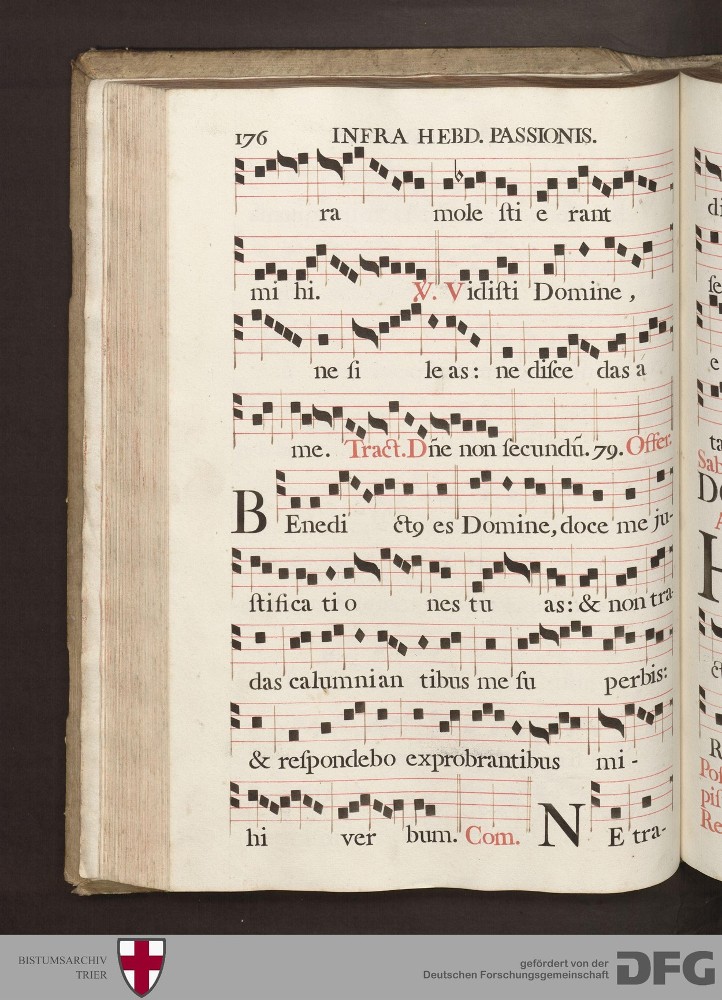 176 INFRA HEBD. PASSIONIS.
ra mole sti e rant
mi hi. V. Vidisti Domine,
ne si le as: ne disce das á
me. Tract. Dñe non secundũ. 79. Offer.
BEnedi ct9 es Domine, doce me ju-
stifica ti o nes tu as: & non tra-
das calumnian tibus me su perbis:
& respondebo exprobrantibus mi-
hi ver bum. Com. NE tra-
BISTUMSARCHIV
TRIER
gefördert von der
Deutschen Forschungsgemeinschaft
DFG